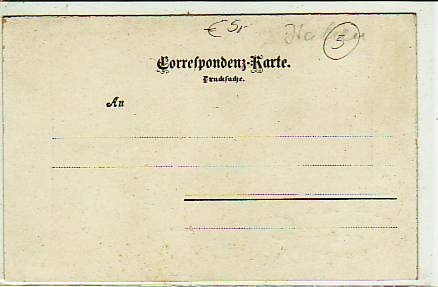 € 5,- Italien 5
Correspondenz-Karte.
Drucksache.
An